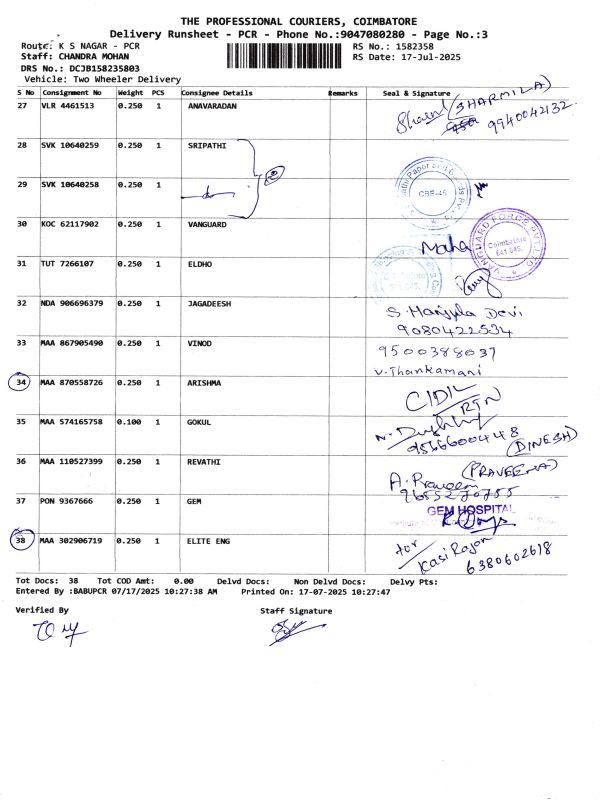 THE PROFESSIONAL COURIERS, COIMBATORE
Delivery Runsheet - PCR - Phone No.:9047080280 - Page No.:3
Route: K S NAGAR - PCR RS No.: 1582358
Staff: CHANDRA MOHAN RS Date: 17-Jul-2025
DRS No.: DCJB158235803
Vehicle: Two Wheeler Delivery
S No Consignment No Weight PCS Consignee Details Remarks Seal & Signature
27 VLR 4461513 0.250 1 ANAVARADAN (SHARMILA)
9940042132
28 SVK 10640259 0.250 1 SRIPATHI
29 SVK 10640258 0.250 1 CBE-45
30 KOC 62117902 0.250 1 VANGUARD Maha VANGUARD FORCE PVT LTD Coimbatore 641 045.
31 TUT 7266107 0.250 1 ELDHO
32 NDA 906696379 0.250 1 JAGADEESH S. Manjula Devi
9080422534
33 MAA 867905490 0.250 1 VINOD 9500388037
V. Thankamani
34 MAA 870558726 0.250 1 ARISHMA CIDIL/
RTN
35 MAA 574165758 0.100 1 GOKUL
9566600448 (DINESH)
36 MAA 110527399 0.250 1 REVATHI (PRAVEENA)
A. Praveena
9655270755
37 PON 9367666 0.250 1 GEM GEM HOSPITAL
38 MAA 302906719 0.250 1 ELITE ENG for
Kasi Rajan
6380602618
Tot Docs: 38 Tot COD Amt: 0.00 Delvd Docs: Non Delvd Docs: Delvy Pts:
Entered By :BABUPCR 07/17/2025 10:27:38 AM Printed On: 17-07-2025 10:27:47
Verified By Staff Signature